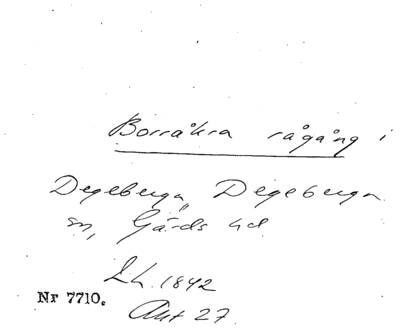 Borråkra rågång i
Degeberga, Degeberga
sn, Gärds hd
Lh. 1842
Akt 27
Nr 7710.